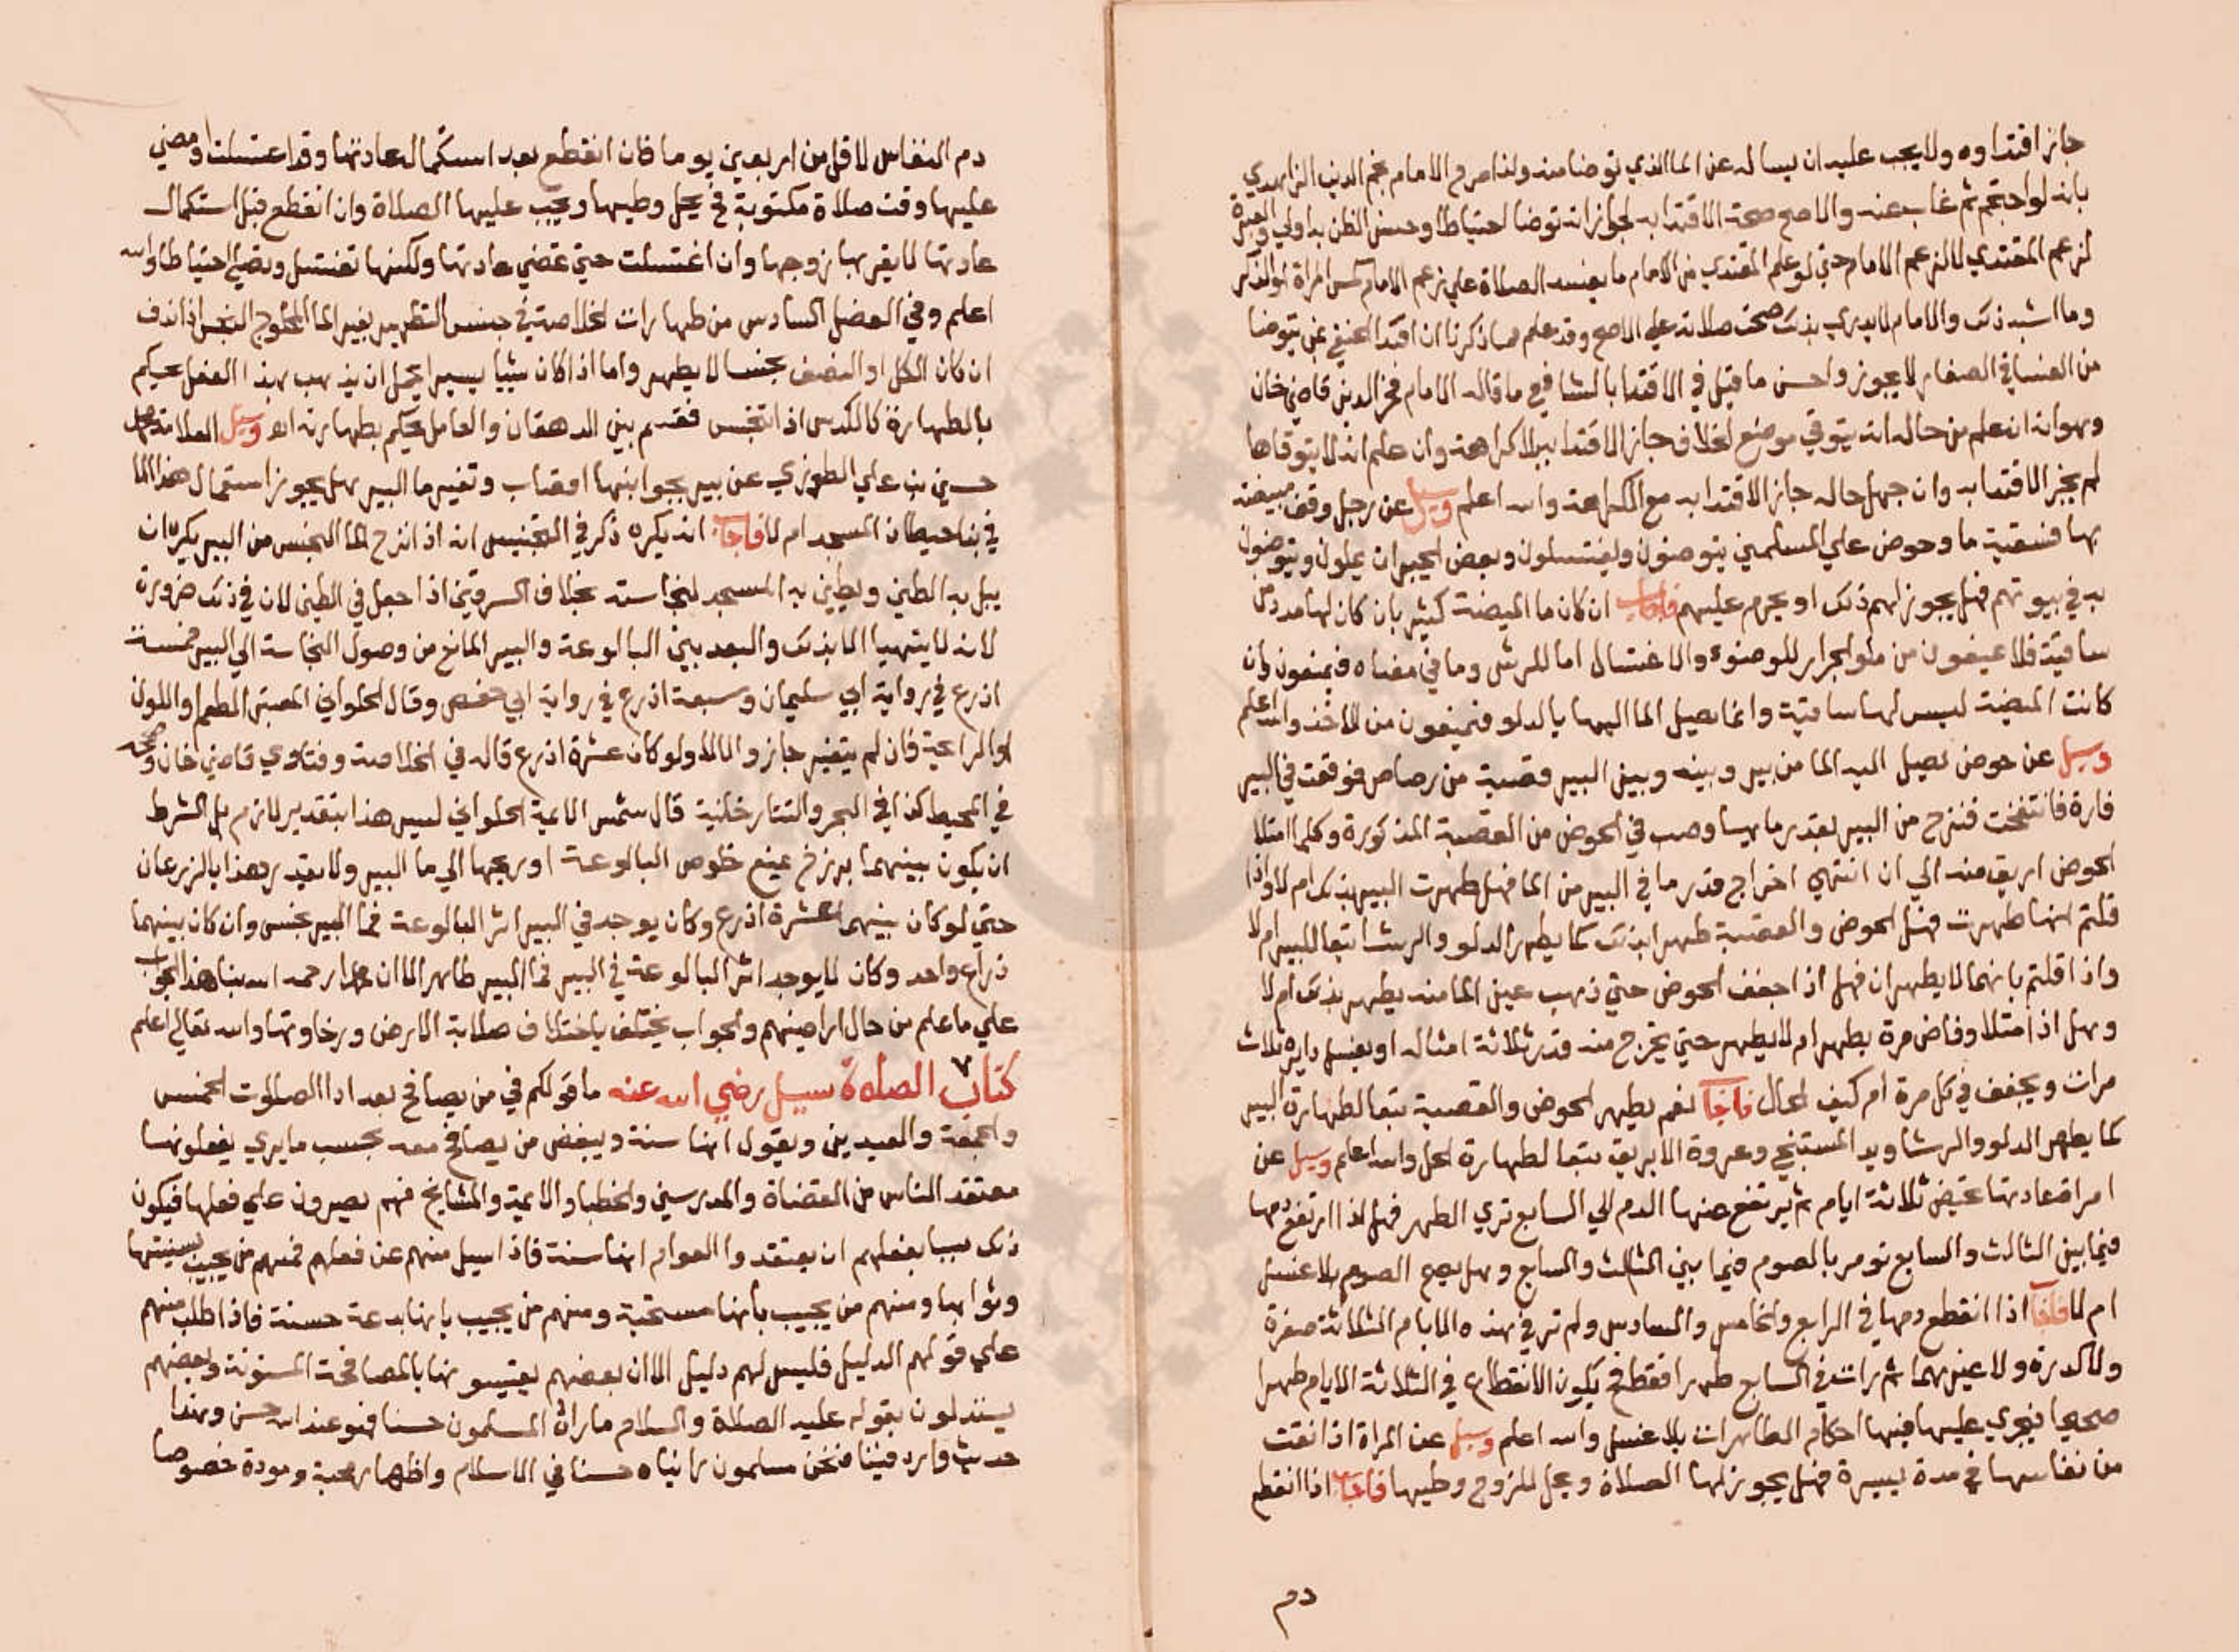 جاز اقتداوه ولا يجب عليه ان يساله عن الما الذي توضا منه ولذا صرح الامام نجم الدين الزاهدي
بانه لو احتجم ثم غاب عنه والاصح صحة الاقتدا به لجواز انه توضا احتياطا وحسن الظن به اولى والعبرة
لزعم المقتدي لا لزعم الامام حتي لو علم المقتدي من الامام ما يفسد الصلاة علي زعم الامام كمس امراة او الذكر
وما اشبه ذلك والامام لا يدري بذلك صحت صلاته علي الاصح وقد علم مما ذكرنا ان اقتدا الحنفي بمن يتوضا
من الفساقي الصغار لا يجوز واحسن ما قيل في الاقتدا بالشافعي ما قاله الامام فخر الدين قاضي خان
وهوانه ان علم من حاله انه يتوقي موضع الخلاف جاز الاقتدا به بلا كراهة وان علم انه لا يتوقاها
لم يجز الاقتدا به وان جهل حاله جاز الاقتدا به مع الكراهة والله اعلم وسيل عن رجل وقف ميضة
بها فسقية ما وحوض علي المسلمين يتوضون ويغتسلون وبعض الجيران يملون ويتوضون
به في بيوتهم فهل يجوز لهم ذلك او يحرم عليهم فاجاب ان كان ما الميضة كثير بان كان لها مدد من
ساقية فلا يمنعون من ملو الجرار للوضوء والاغتسال اما للرش وما في معناه فيمنعون وان
كانت الميضة ليس لها ساقية وانما يصل الما اليها بالدلو فيمنعون من الاخذ والله اعلم
وسيل عن حوض يصل اليه الما من بير وبينه وبين البير قصبة من رصاص فوقعت في البير
فارة فانتفخت فنزح من البير بقدر ما بها وصب في الحوض من القصبة المذكورة وكلما امتلا
الحوض اريق منه الي ان انتهي اخراج قدر ما في البير من الما فهل طهرت البير بذلك ام لا واذا
قلتم انها طهرت فهل الحوض والقصبة طهرا بذلك كما يطهر الدلو والرشا تبعا للبير ام لا
واذا قلتم بانهما لا يطهران فهل اذا جفف الحوض حتي ذهب عين الما منه يطهر بذلك ام لا
وهل اذا امتلا وفاض مرة يطهر ام لا يطهر حتي يخرج منه قدر ثلاثة امثاله او يغسل دايره ثلاث
مرات ويجفف في كل مرة ام كيف الحال فاجاب نعم يطهر الحوض والقصبة تبعا لطهارة البير
كما يطهر الدلو والرشا ويد المستنجي وعروة الابريق تبعا لطهارة المحل والله اعلم وسيل عن
امراة عادتها تحيض ثلاثة ايام ثم يرتفع عنها الدم الي السابع تري الطهر فهل اذا ارتفع دمها
فيما بين الثالث والسابع تومر بالصوم فيما بين الثالث والسابع وهل يصح الصوم بلا غسل
ام لا فاجاب اذا انقطع دمها في الرابع والخامس والسادس ولم تر في هذه الايام الثلاثة صفرة
ولا كدرة ولا غيرهما ثم رات في السابع طهرا فقط فح يكون الانقطاع في الثلاثة الايام طهرا
صحيحا فيجري عليها فيها احكام الطاهرات بلا غسل والله اعلم وسيل عن المراة اذا نقت
من نفاسها في مدة يسيرة فهل يجوز لها الصلاة ويحل للزوج وطيها فاجاب اذا انقطع
دم
دم النفاس لاقل من اربعين يوما فان انقطع بعد استكمال عادتها وقد اغتسلت او مضي
عليها وقت صلاة مكتوبة فح يحل وطيها ويجب عليها الصلاة وان انقطع قبل استكمال
عادتها لا يقربها زوجها وان اغتسلت حتي تمضي عادتها ولكنها تغتسل وتصلي احتياطا والله
اعلم وفي الفصل السادس من طهارات الخلاصة في جنس التطهير بغير الما المحلوج النجس اذا ندف
ان كان الكل او النصف نجسا لا يطهر واما اذا كان شيا يسيرا يحتمل ان يذهب بهذا الفعل يحكم
بالطهارة كالكدس اذا تنجس فقسم بين الدهقان والعامل يحكم بطهارته اه وسيل العلامة
حسين بن علي الطوري عن بير بجوانبها اقصاب وتغير ما البير هل يجوز استعمال هذا الما
في بنا حيطان المسجد ام لا فاجاب انه يكره ذكر في التجنيس انه اذا نزح الما النجس من البير يكره ان
يبل به الطين ويطين به المسجد لنجاسته بخلاف السرقين اذا جعل في الطين لان في ذلك ضرورة
لانه لا يتهيا الا بذلك والبعد بين البالوعة والبير المانع من وصول النجاسة الي البير خمسة
اذرع في رواية ابي سليمان وسبعة اذرع في رواية ابي حفص وقال الحلواني المعتبر الطعم او اللون
او الرايحة فان لم يتغير جاز والا لا ولو كان عشرة اذرع قاله في الخلاصة وفتاوي قاضي خان وصححه
في المحيط كذا في البحر والتتارخانية قال شمس الايمة الحلواني ليس هذا بتقدير لازم بل الشرط
ان يكون بينهما برزخ يمنع خلوص البالوعة او ريحها الي ما البير ولا يقدر هذا بالذرعان
حتي لو كان بينهما عشرة اذرع وكان يوجد في البير اثر البالوعة فما البير نجس وان كان بينهما
ذراع واحد وكان لا يوجد اثر البالوعة في البير فما البير طاهر الا ان محمدا رحمه الله بنا هذا الجواب
علي ما علم من حال اراضيهم والجواب يختلف باختلاف صلابة الارض ورخاوتها والله تعالي اعلم
كتاب الصلاة سيل رضي الله عنه ما قولكم في من يصافح بعد ادا الصلوت الخمس
والجمعة والعيدين ويقول انها سنة ويبغض من يصافح معه بحسب ما يري يفعلونها
معتقد الناس من القضاة والمدرسين والخطبا والايمة والمشايخ فهم يصرون علي فعلها فيكون
ذلك سببا بفعلهم ان يعتقدوا العوام انها سنة فاذا سيل منهم عن فعلهم فمنهم من يجيب بسنيتها
وثوابها ومنهم من يجيب بانها مستحبة ومنهم من يجيب بانها بدعة حسنة فاذا طلب منهم
علي قولهم الدليل فليس لهم دليل الا ان بعضهم يقيسونها بالمصافحة المسنونة وبعضهم
يستدلون بقوله عليه الصلاة والسلام ما راه المسلمون حسنا فهو عند الله حسن وهذا
حديث وارد فينا فنحن مسلمون رايناه حسنا في الاسلام واظهار محبة ومودة خصوصا